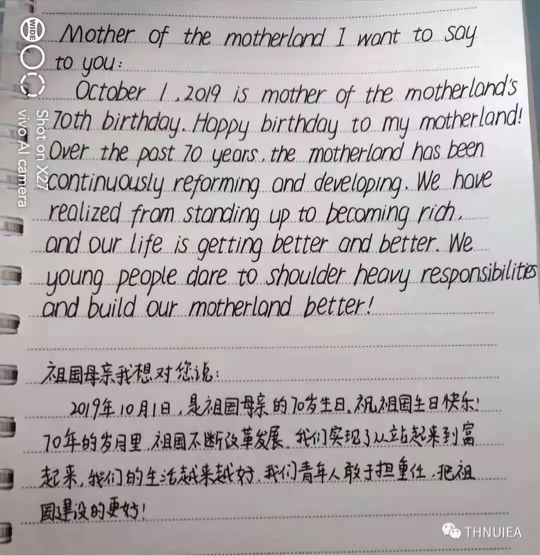 Mother of the motherland I want to say
to you:
October 1, 2019 is mother of the motherland's
70th birthday. Happy birthday to my motherland!
Over the past 70 years, the motherland has been
continuously reforming and developing. We have
realized from standing up to becoming rich,
and our life is getting better and better. We
young people dare to shoulder heavy responsibilities
and build our motherland better!
祖国母亲我想对您说:
2019年10月1日,是祖国母亲的70岁生日,祝祖国生日快乐!
70年的岁月里,祖国不断改革发展,我们实现了从站起来到富
起来,我们的生活越来越好,我们青年人敢于担重任,把祖
国建设的更好!
WIDE
Shot on X27
vivo AI camera
THNUIEA